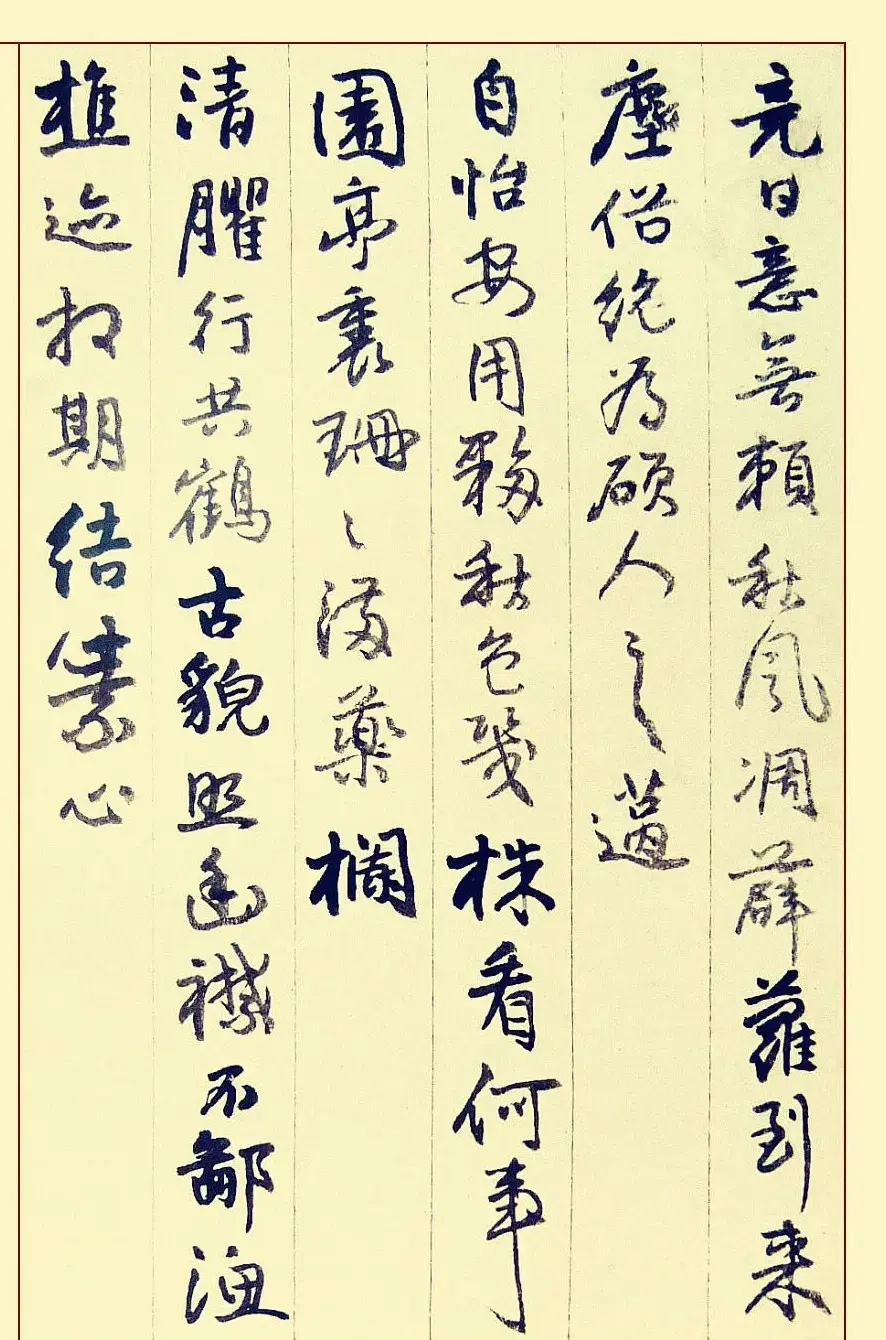 竟日意無賴秋風凋薜蘿到来
塵俗絶為碩人之薖
自怡安用夥秋色幾株看何事
園亭裏珊〻滿藥欄
清臞行共鶴古貌照幽襟不鄙漁
樵迹相期結素心